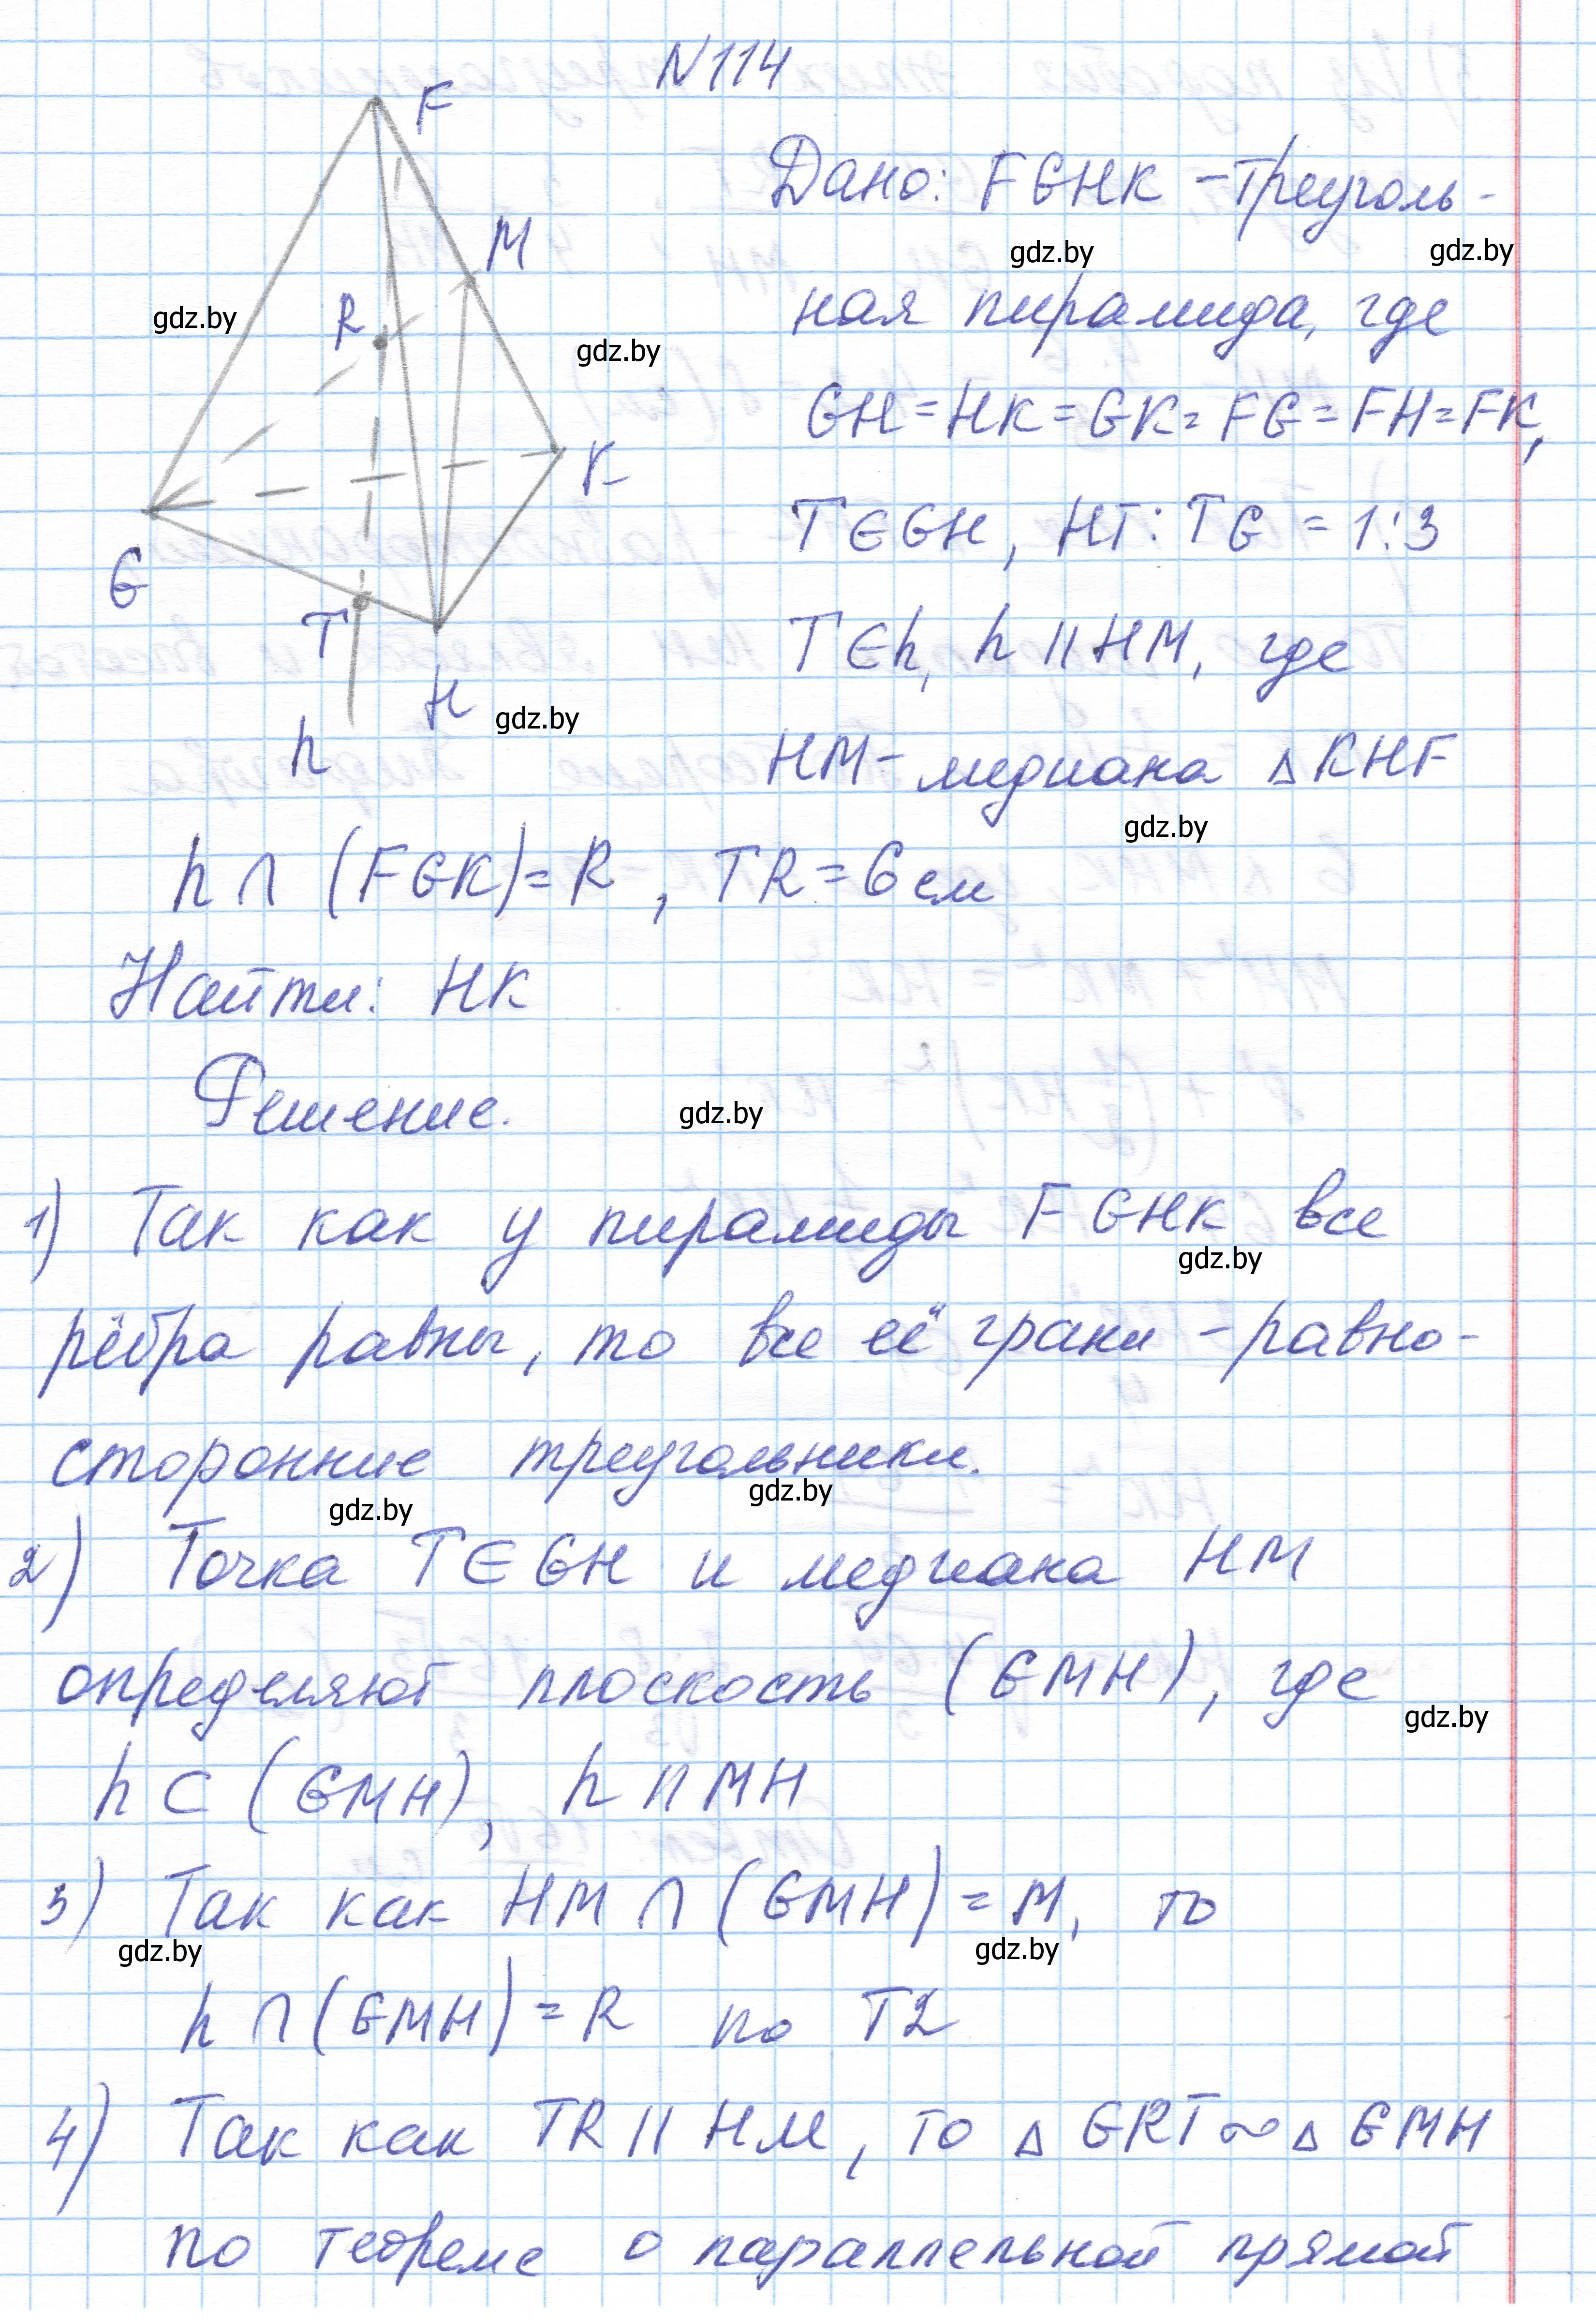 N114
F
M
R
K
G
T
H
h
Дано: FGHK – треуголь-
ная пирамида, где
GH = HK = GK = FG = FH = FK,
T∈GH, HT : TG = 1:3
T∈h, h || HM, где
HM – медиана △KHF
h ∩ (FGK) = R, TR = 6 см
Найти: HK
Решение.
1) Так как у пирамиды FGHK все
рёбра равны, то все её грани – равно-
сторонние треугольники.
2) Точка T∈GH и медиана HM
определяют плоскость (GMH), где
h ⊂ (GMH), h || MH
3) Так как HM ∩ (GMH) = M, то
h ∩ (GMH) = R по T2
4) Так как TR || HM, то △ GRT ∾ △ GMH
по теореме о параллельной прямой
gdz.by
gdz.by
gdz.by
gdz.by
gdz.by
gdz.by
gdz.by
gdz.by
gdz.by
gdz.by
gdz.by
gdz.by
gdz.by